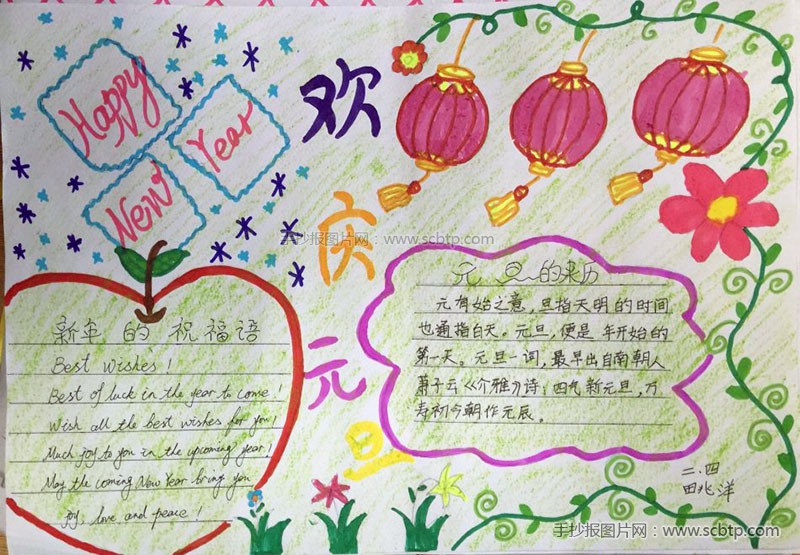 Happy
New Year
欢
庆
元
旦
手抄报图片网：www.scbtp.com
新年的祝福语
Best Wishes!
Best of luck in the year to come!
Wish all the best wishes for you!
Much joy to you in the upcoming year!
May the coming New Year bring you
joy, love and peace!
元旦的来历
元有始之意，旦指天明的时间
也通指白天。元旦，便是一年开始的
第一天。元旦一词，最早出自南朝人
萧子云《介雅》诗：四气新元旦，万
寿初今朝作元辰。
二.四
田兆洋
手抄报图片网：www.scbtp.com